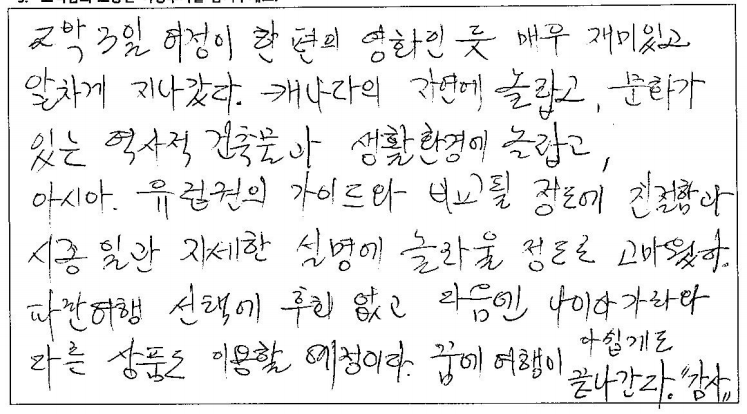 2박 3일 여정이 한 편의 영화인 듯 매우 재미있고
알차게 지나갔다. 캐나다의 자연에 놀랍고, 문화가
있는 역사적 건축물과 생활환경에 놀랍고,
아시아. 유럽권의 가이드와 비교될 정도에 친절함과
시종일관 자세한 설명에 놀라울 정도로 고마웠다.
파란여행 선택에 후회 없고 다음엔 나이아가라와
다른 상품도 이용할 예정이다. 꿈에 여행이 아쉽게도
끝나간다. "감사"